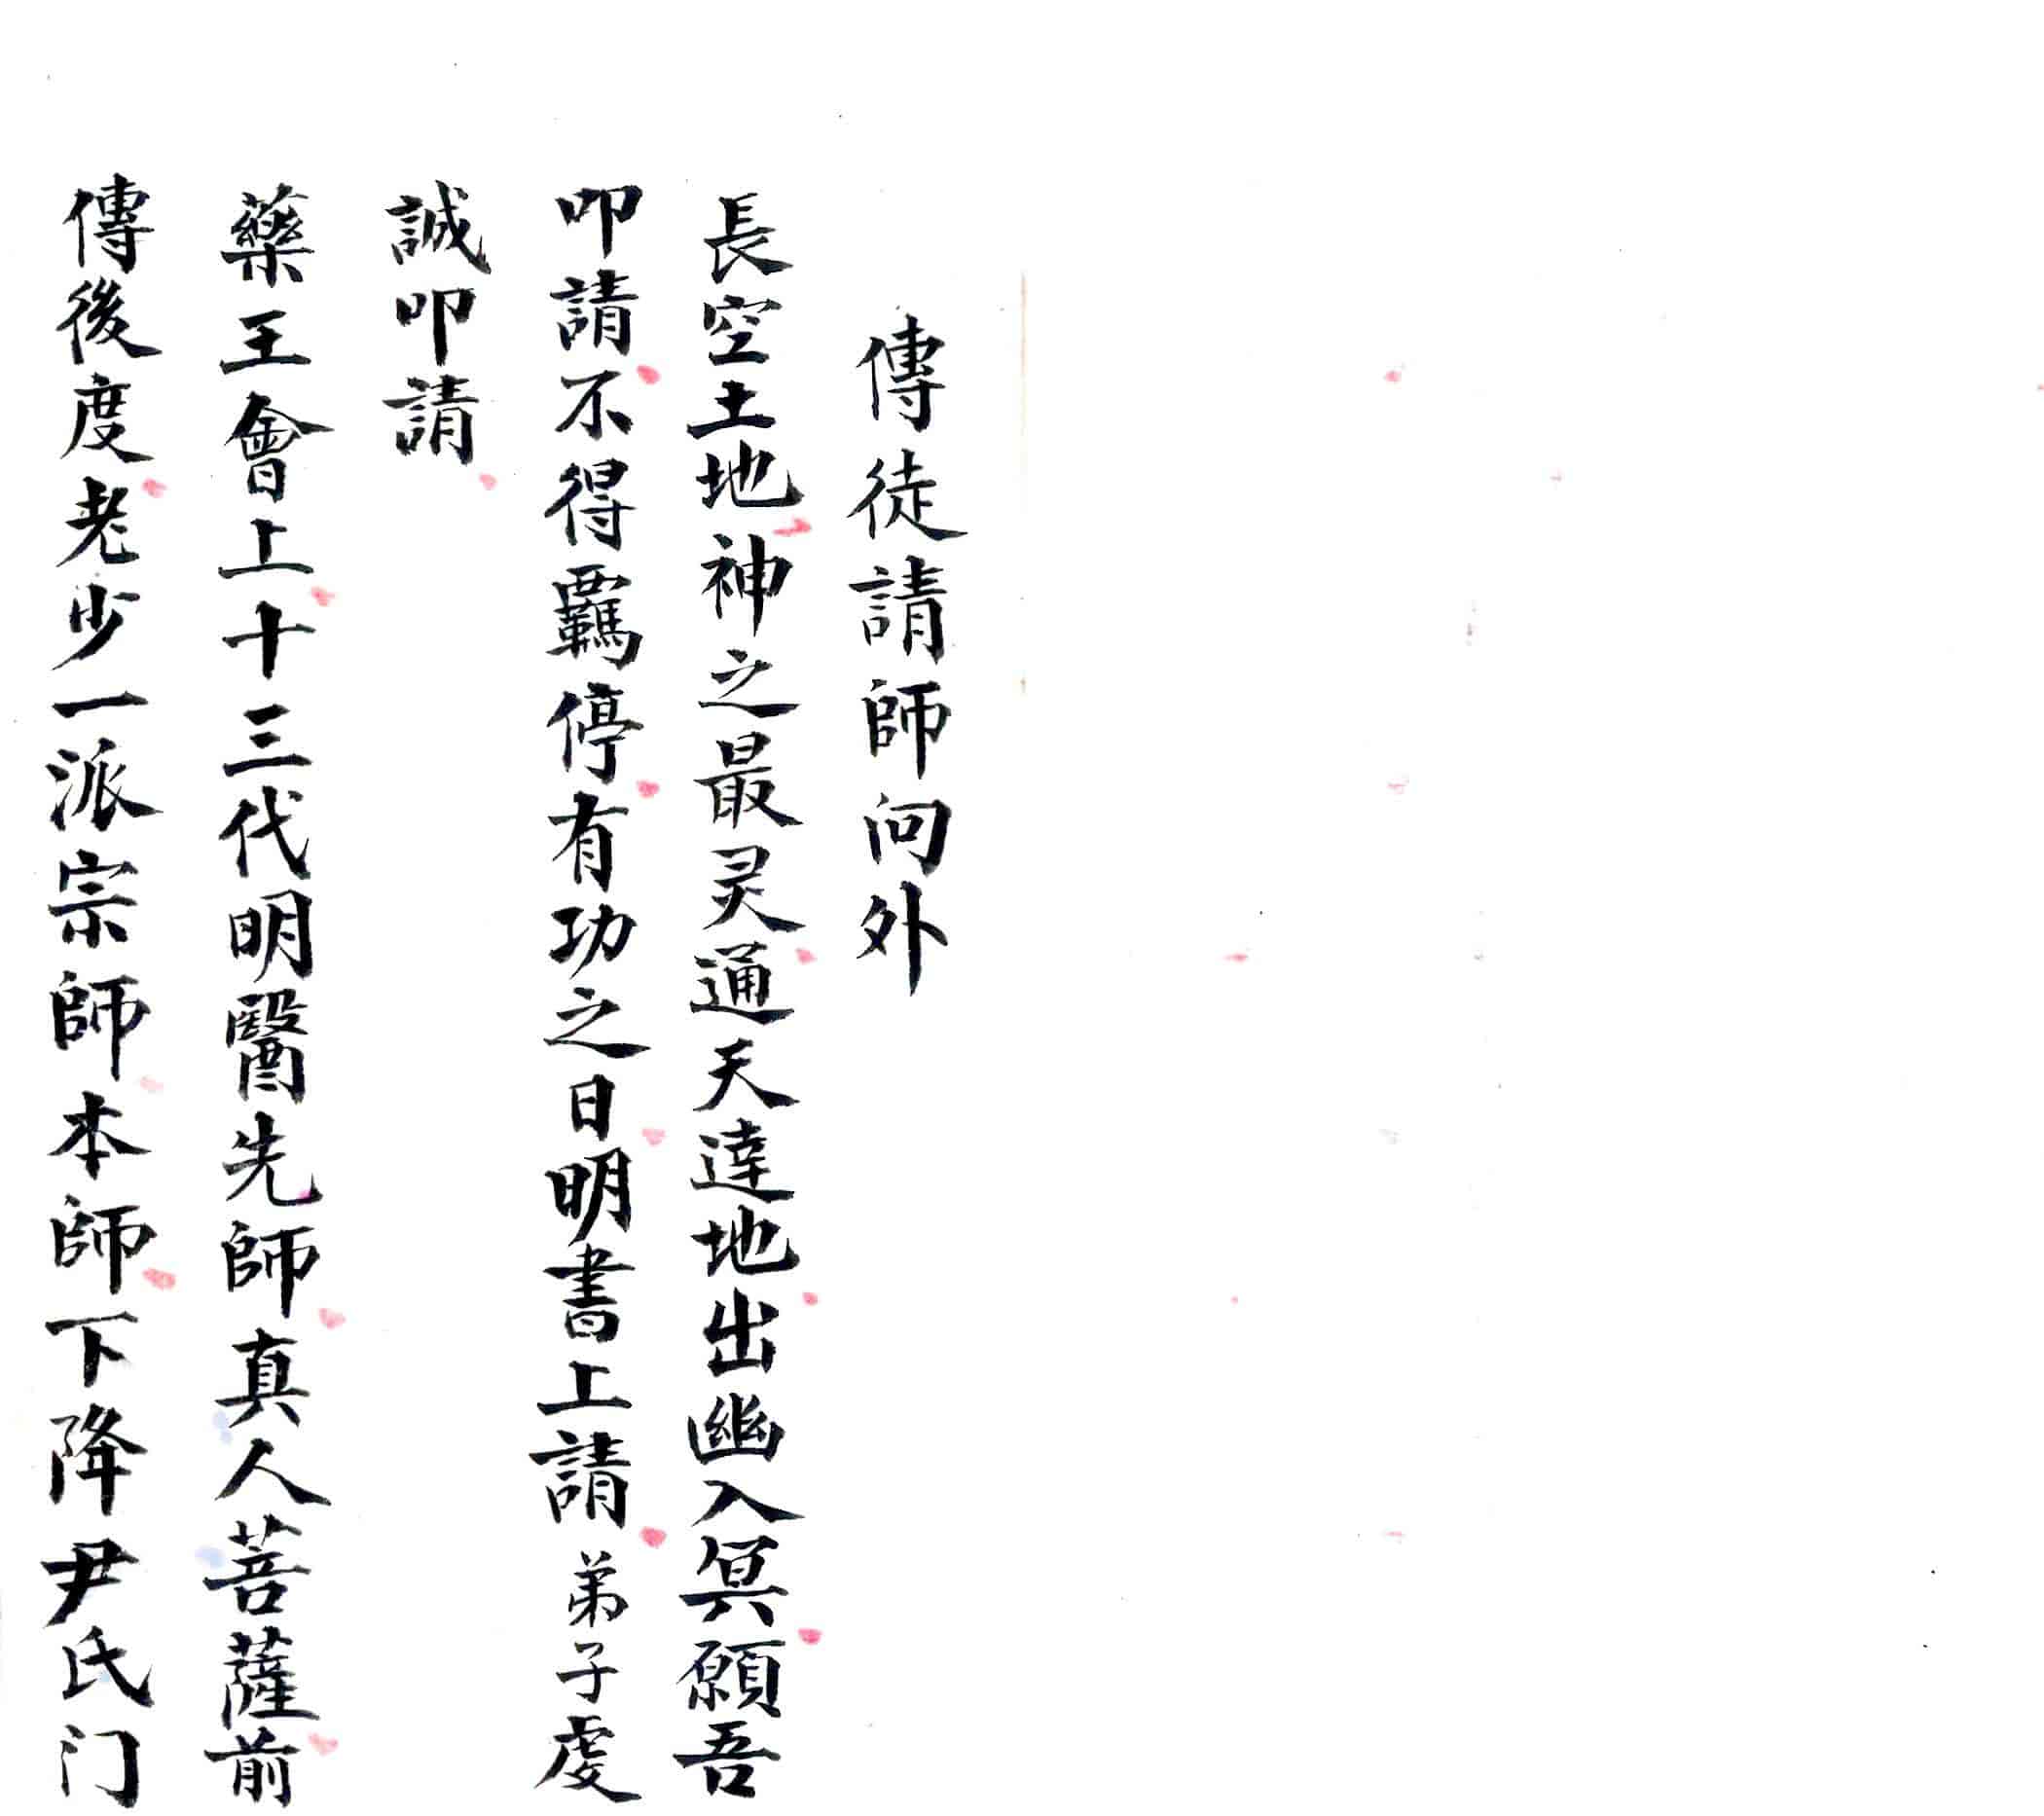 傳徒請師问外
長空土地神之最灵通天達地出幽入冥願吾
叩請不得羈停有功之日明書上請弟子虔
誠叩請
藥王會上十三代明醫先師真人菩薩前
傳後度老少一派宗師本師下降尹氏门